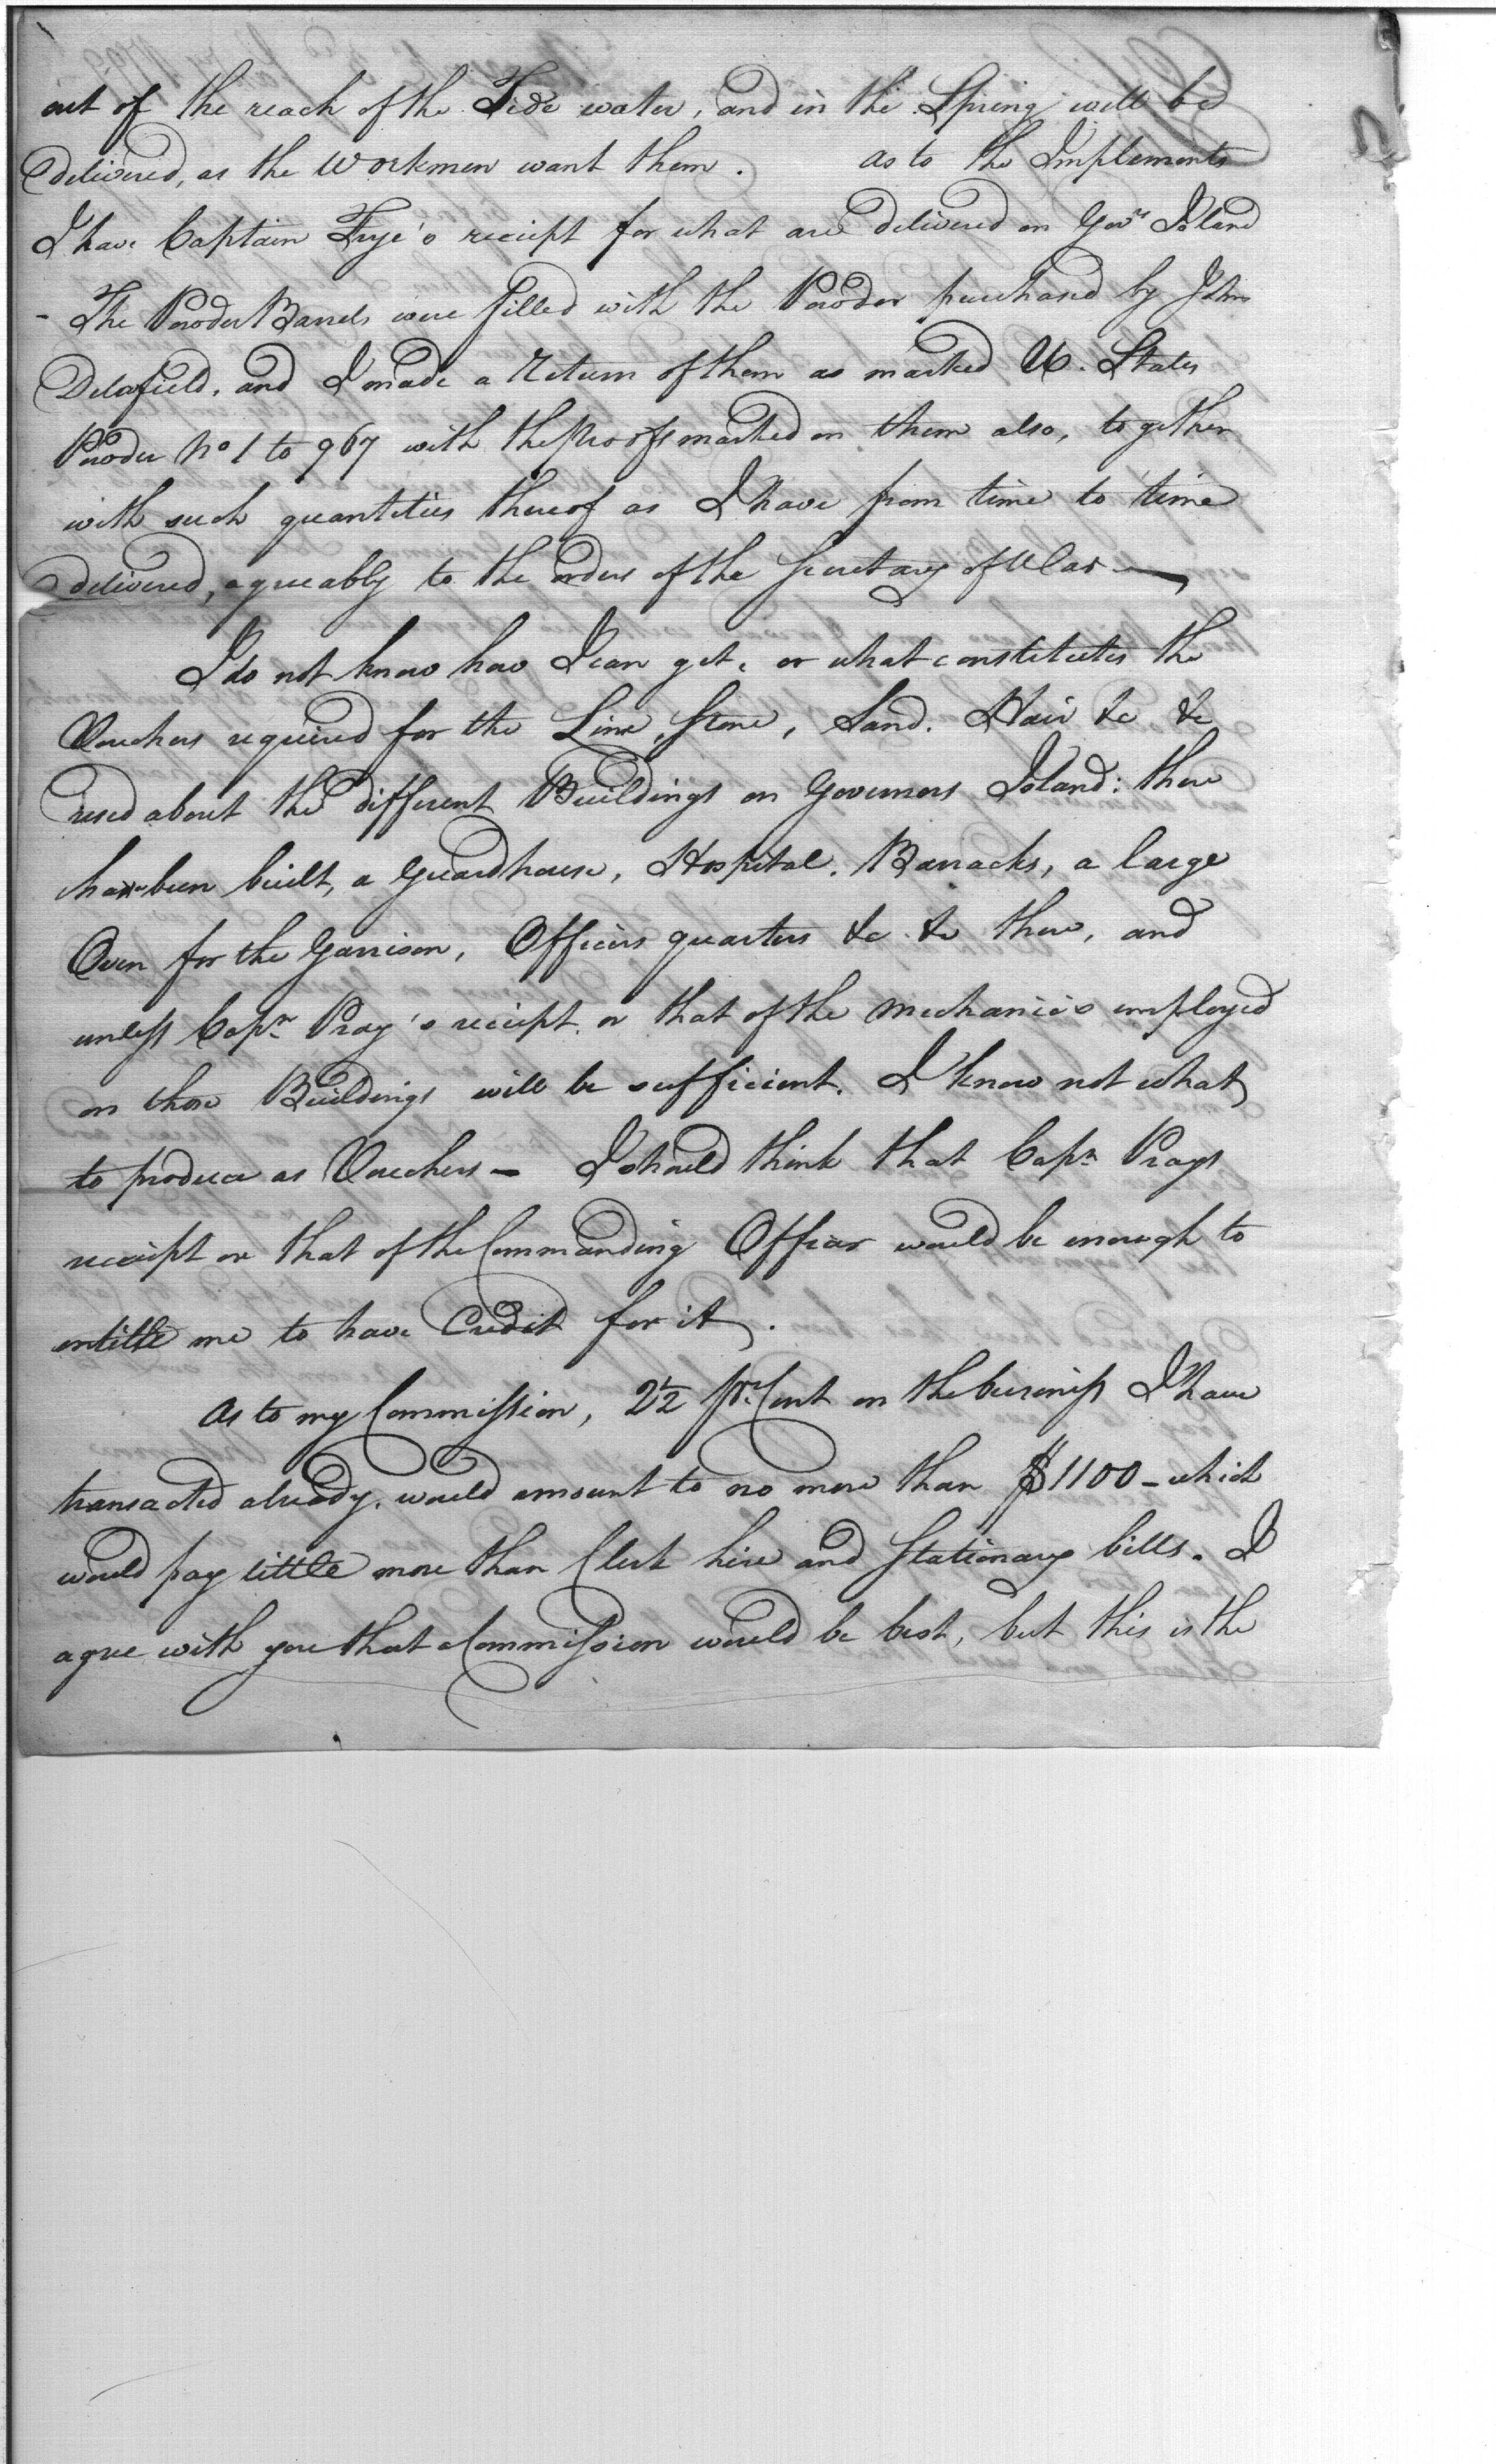 out of the reach of the Tide water, and in the Spring will be
delivered, as the Workmen want them. as to the Implements
I have Captain Frye's receipt for what are delivered on Govrs Island
- The Powder Barrels were filled with the Powder purchased by John
Delafield, and I made a Return of them as marked U. States
Powder No 1 to 967 with the proofs marked on them also, together
with such quantities thereof as I have from time to time
delivered, agreeably to the orders of the Secretary of War —
I do not know how I can get, or what constitutes the
Vouchers required for the Lime, Stone, Sand, Hair &c &c
used about the different Buildings on Governors Island: there
have been built, a Guardhouse, Hospital, Barracks, a large
Oven for the Garrison, Officers quarters &c &c there, and
unless Capn Pray's receipt, or that of the mechanics employed
on those Buildings will be sufficient, I know not what
to produce as Vouchers — I should think that Capn Prays
receipt or that of the Commanding Officer would be enough to
entitle me to have Credit for it.
As to my Commission, 2½ pr Cent on the business I have
transacted already, would amount to no more than $1100 – which
would pay little more than Clerk hire and Stationary bills. I
agree with you that a Commission would be best, but this is the